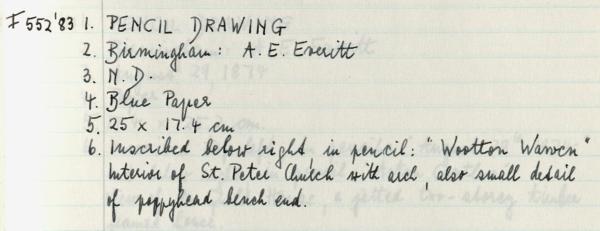 F 552'83 1. PENCIL DRAWING
2. Birmingham: A. E. Everitt
3. N.D.
4. Blue Paper
5. 25 x 17.4 cm
6. Inscribed below right, in pencil: "Wootton Wawen"
Interior of St. Peter Church with arch, also small detail
of poppyhead bench end.